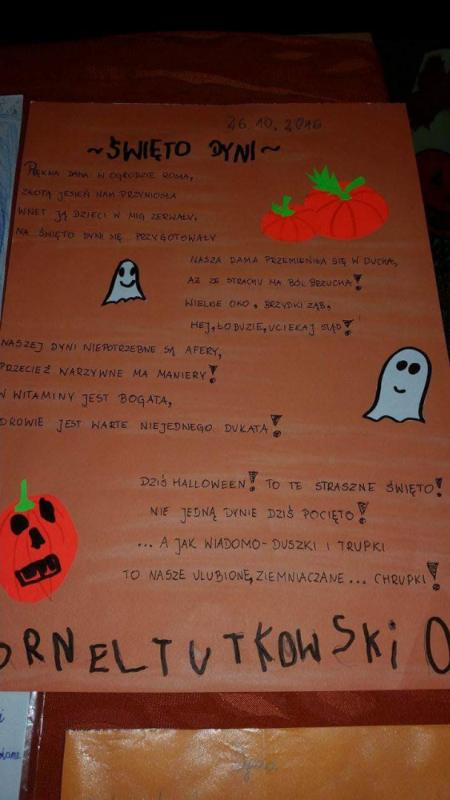 26.10.2016
~ŚWIĘTO DYNI~
PIĘKNA DAMA W OGRODZIE ROSŁA,
ZŁOTĄ JESIEŃ NAM PRZYNIOSŁA
WNET JĄ DZIECI W MIG ZERWAŁY,
NA ŚWIĘTO DYNI SIĘ PRZYGOTOWAŁY
NASZA DAMA PRZEMIENIŁA SIĘ W DUCHA,
AŻ ZE STRACHU MA BÓL BRZUCHA!
WIELKIE OKO, BRZYDKI ZĄB,
HEJ, ŁOBUZIE, UCIEKAJ STĄD!
NASZEJ DYNI NIEPOTRZEBNE SĄ AFERY,
PRZECIEŻ WARZYWNE MA MANIERY!
W WITAMINY JEST BOGATA,
ZDROWIE JEST WARTE NIEJEDNEGO DUKATA!
DZIŚ HALLOWEEN! TO TE STRASZNE ŚWIĘTO!
NIE JEDNĄ DYNIE DZIŚ POCIĘTO!
... A JAK WIADOMO - DUSZKI I TRUPKI
TO NASZE ULUBIONE, ZIEMNIACZANE... CHRUPKI!
ORNEL TUTKOWSKI O